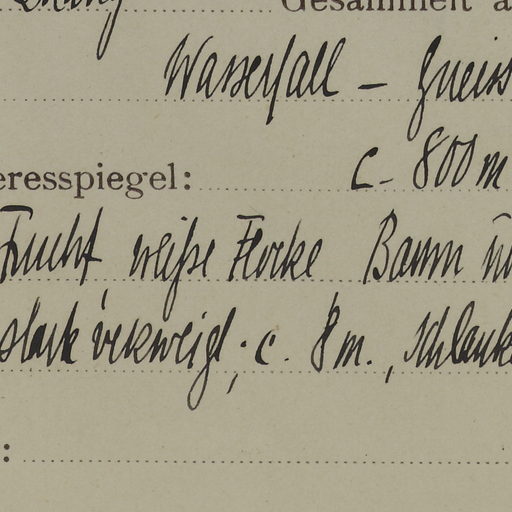 Gesammelt a
Wasserfall – Gneiss
eresspiegel: c. 800 m
Frucht weiße Flocke Baum
stark verzweigt; c. 8 m., schlank
: